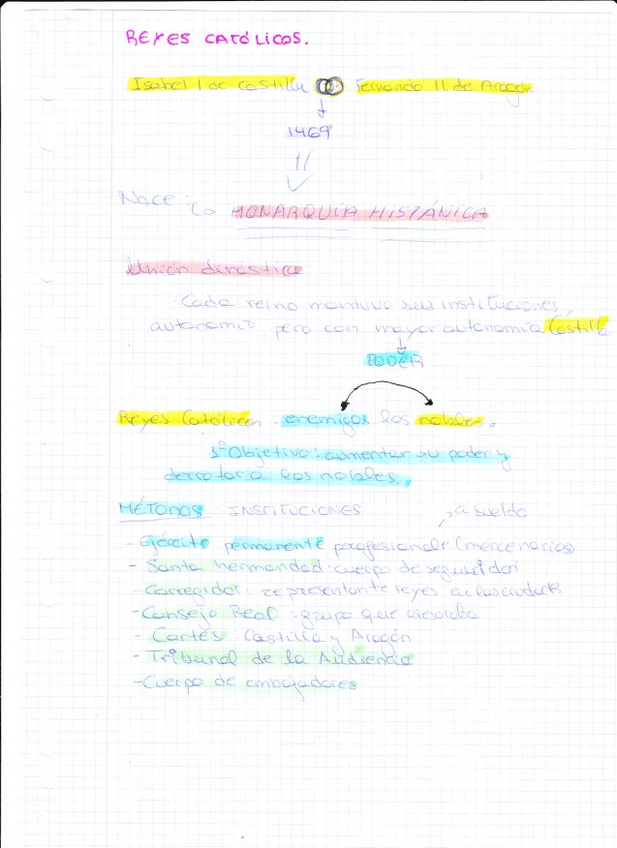 REYES CATÓLICOS.
Isabel I de Castilla Fernando II de Aragón
1469
Nace: La MONARQUÍA HISPÁNICA
Unión dinástica:
Cada reino mantuvo sus instituciones,
autonomía pero con mayor autonomía Castilla
PODER
Reyes Católicos. enemigos los nobles.
1º Objetivo: aumentar su poder y
derrotar a los nobles.
MÉTODOS INSTITUCIONES a sueldo
- Ejército permanente profesional (mercenarios)
- Santa hermandad: cuerpo de seguridad
- Corregidor: representante reyes en las ciudades
- Consejo Real: grupo que asesoraba
- Cortes: Castilla y Aragón
- Tribunal de la Audiencia
- Cuerpo de embajadores